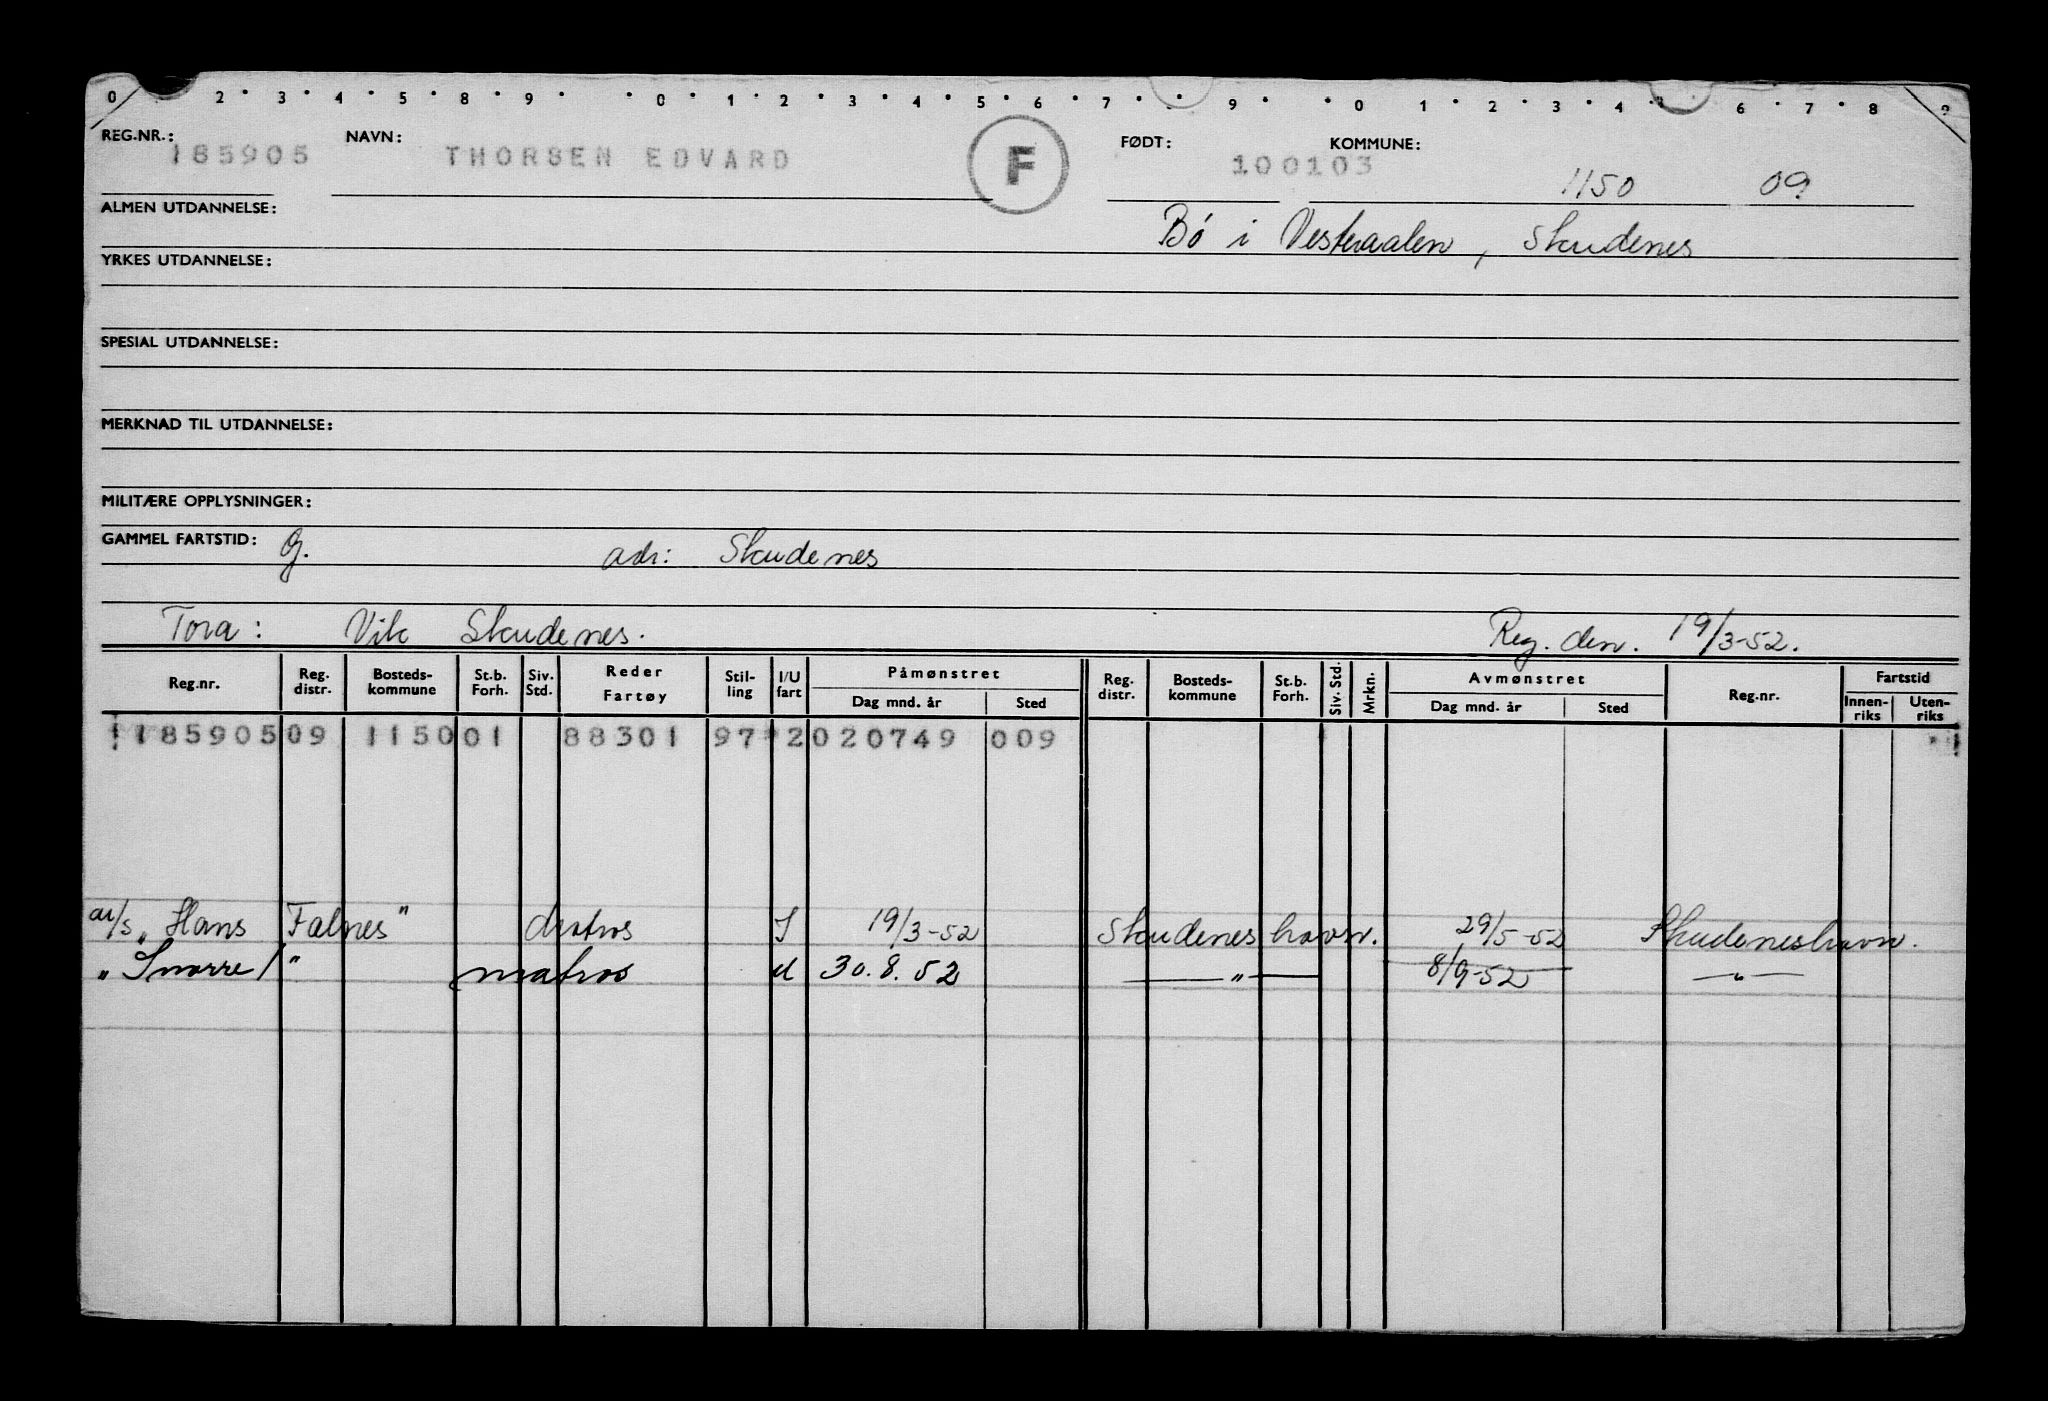 0 2 3 4 5 8 9 0 1 2 3 4 5 6 7 9 0 1 2 3 4 6 7 8 9
REG.NR.: 185905 NAVN: THORSEN EDVARD F FØDT: 100103 KOMMUNE: 1150 09
ALMEN UTDANNELSE: Bø i Vesteraalen, Skudenes
YRKES UTDANNELSE:
SPESIAL UTDANNELSE:
MERKNAD TIL UTDANNELSE:
MILITÆRE OPPLYSNINGER:
GAMMEL FARTSTID: G. adr: Skudenes
Tora: Vik Skudenes. Reg. den. 19/3-52.
Reg.nr. Reg. distr. Bosteds-kommune St.b. Forh. Siv. Std. Reder Fartøy Stil-ling I/U fart Påmønstret Dag mnd. år Sted Reg. distr. Bosteds-kommune St.b. Forh. Siv. Std. Mrkn. Avmønstret Dag mnd. år Sted Reg.nr. Fartstid Innen-riks Uten-riks
185905 09 1150 01 88301 97 2 020749 009
"Hans Falnes" I 19/3-52 Skudeneshavn. 29/5-52 Skudeneshavn.
"Snorre I" matros U 30.8.52 — " — 8/9-52 — " —